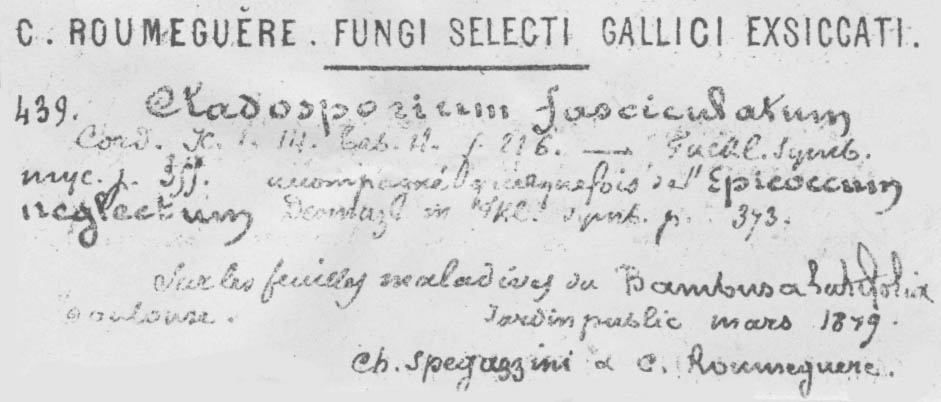 C. ROUMEGUÈRE. FUNGI SELECTI GALLICI EXSICCATI.
439. Cladosporium fasciculatum
Cord. Ic. 1. 14. Tab. 4. f. 216. — Fuckl. Symb.
myc. p. 355. accompagné quelquefois de l'Epicoccum
neglectum Desmaz. in Fkl. Symb. p. 373.
Sur les feuilles maladives du Bambusa latifolia
Toulouse. Jardin public mars 1879.
Ch. Spegazzini & C. Roumeguere.